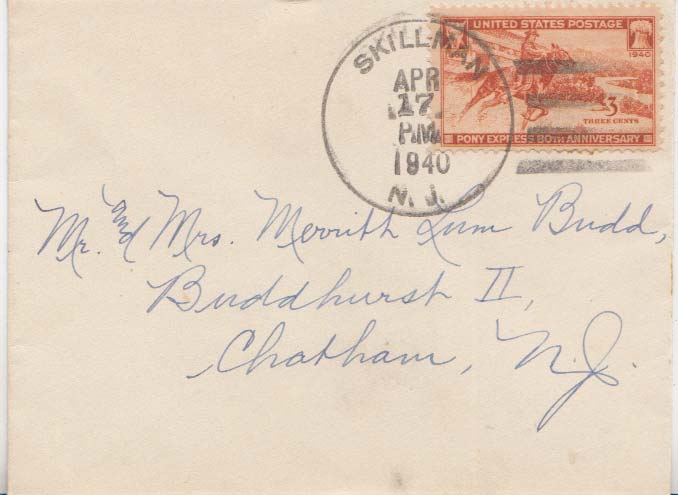 UNITED STATES POSTAGE
1940
3
THREE CENTS
PONY EXPRESS 80TH ANNIVERSARY
SKILLMAN
APR
17
PM
1940
N. J.
Mr. and Mrs. Merritt Lum Budd,
Buddhurst II,
Chatham, N.J.